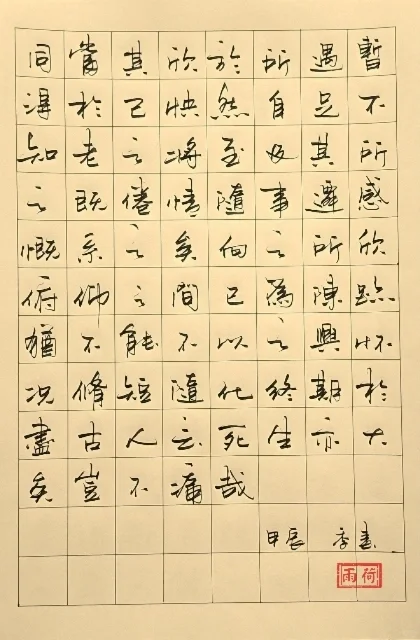 同當其欣於所遇暫
得於已快然自足不
知老之將至及其所
之既倦情隨事遷感
慨系之矣向之所欣
俯仰之間已為陳跡
猶不能不以之興怀
况脩短隨化終期於
盡古人云死生亦大
矣豈不痛哉
甲辰 書
雨荷